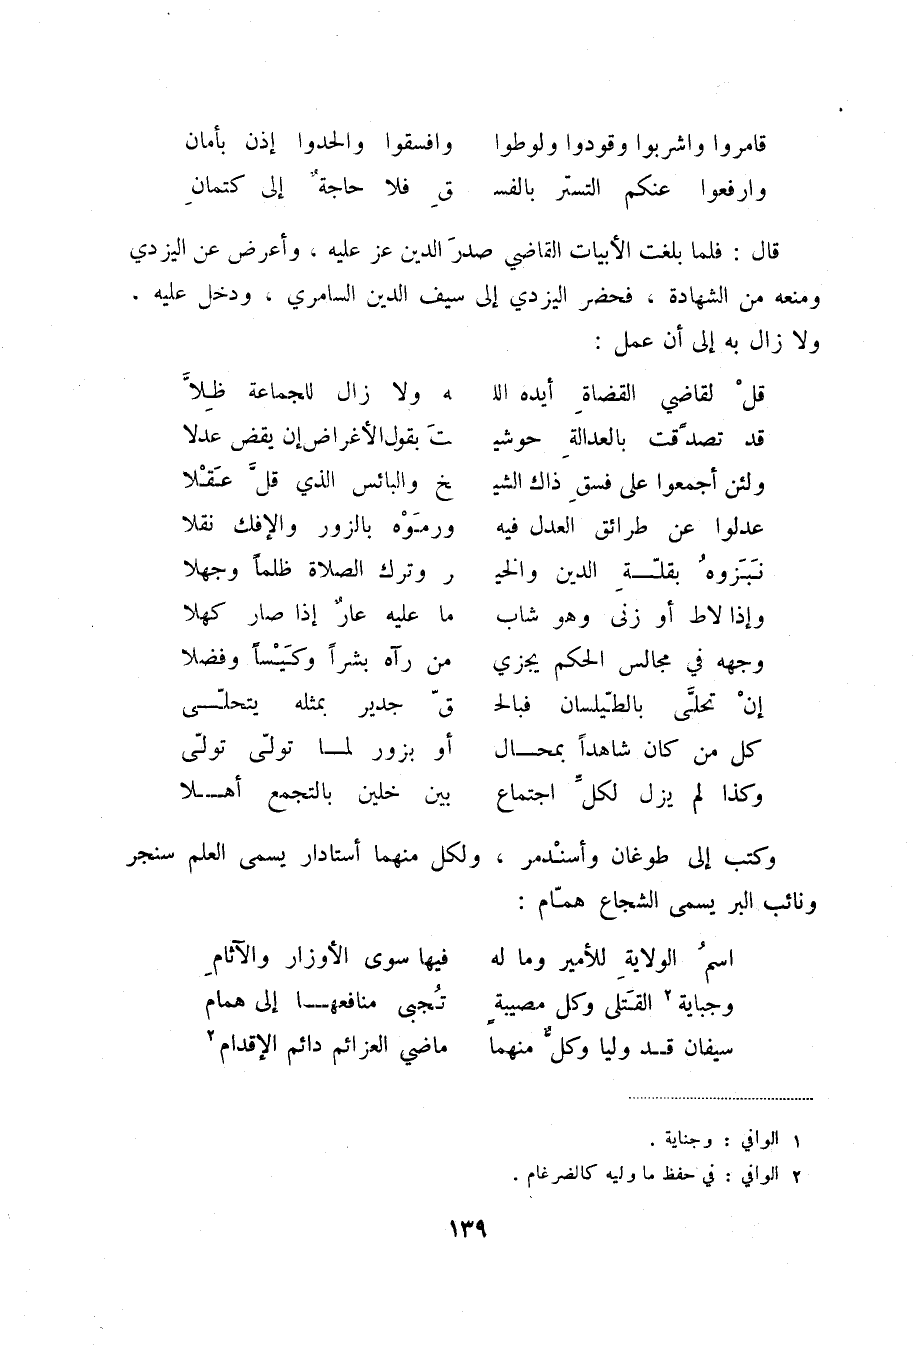 قامروا واشربوا وقودوا ولوطوا وافسقوا والحدوا إذن بأمان
وارفعوا عنكم التستّر بالفسـ ـقِ فلا حاجةٌ إلى كتمانِ
قال : فلما بلغت الأبيات القاضي صدرَ الدين عز عليه ، وأعرض عن اليزدي
ومنعه من الشهادة ، فحضر اليزدي إلى سيف الدين السامري ، ودخل عليه .
ولا زال به إلى أن عمل :
قلْ لقاضي القضاةِ أيده اللـ ـه ولا زال للجماعة ظِلاَّ
قد تصدَّقت بالعدالةِ حوشيـ ـتَ بقول الأغراض إن يقض عدلا
ولئن أجمعوا على فسقِ ذاك الشيـ ـخ والبائس الذي قلَّ عَقْلا
عدلوا عن طرائق العدل فيه ورمَوْه بالزور والإفك نقلا
نَبَزوهُ بقلّــةِ الدين والخيـ ـر وترك الصلاة ظلماً وجهلا
وإذا لاط أو زنى وهو شاب ما عليه عارٌ إذا صار كهلا
وجهه في مجالس الحكم يجزي من رآه بشراً وكَيْساً وفضلا
إنْ تحلَّى بالطّيلسان فبالحـ ـقّ جدير بمثله يتحلّــى
كل من كان شاهداً بمحــال أو بزور لمــا تولّى تولّى
وكذا لم يزل لكلِّ اجتماع بين خلين بالتجمع أهــلا
وكتب إلى طوغان وأسنْدمر ، ولكل منهما أستادار يسمى العلم سنجر
ونائب البر يسمى الشجاع همّام :
اسمُ الولايةِ للأمير وما له فيها سوى الأوزار والآثامِ
وجباية ٢ القَتلى وكل مصيبةٍ تُجبى منافعهــا إلى همام
سيفان قــد وليا وكلٌّ منهما ماضي العزائم دائم الإقدام ٢
١ الوافي : وجناية .
٢ الوافي : في حفظ ما وليه كالضرغام .
١٣٩